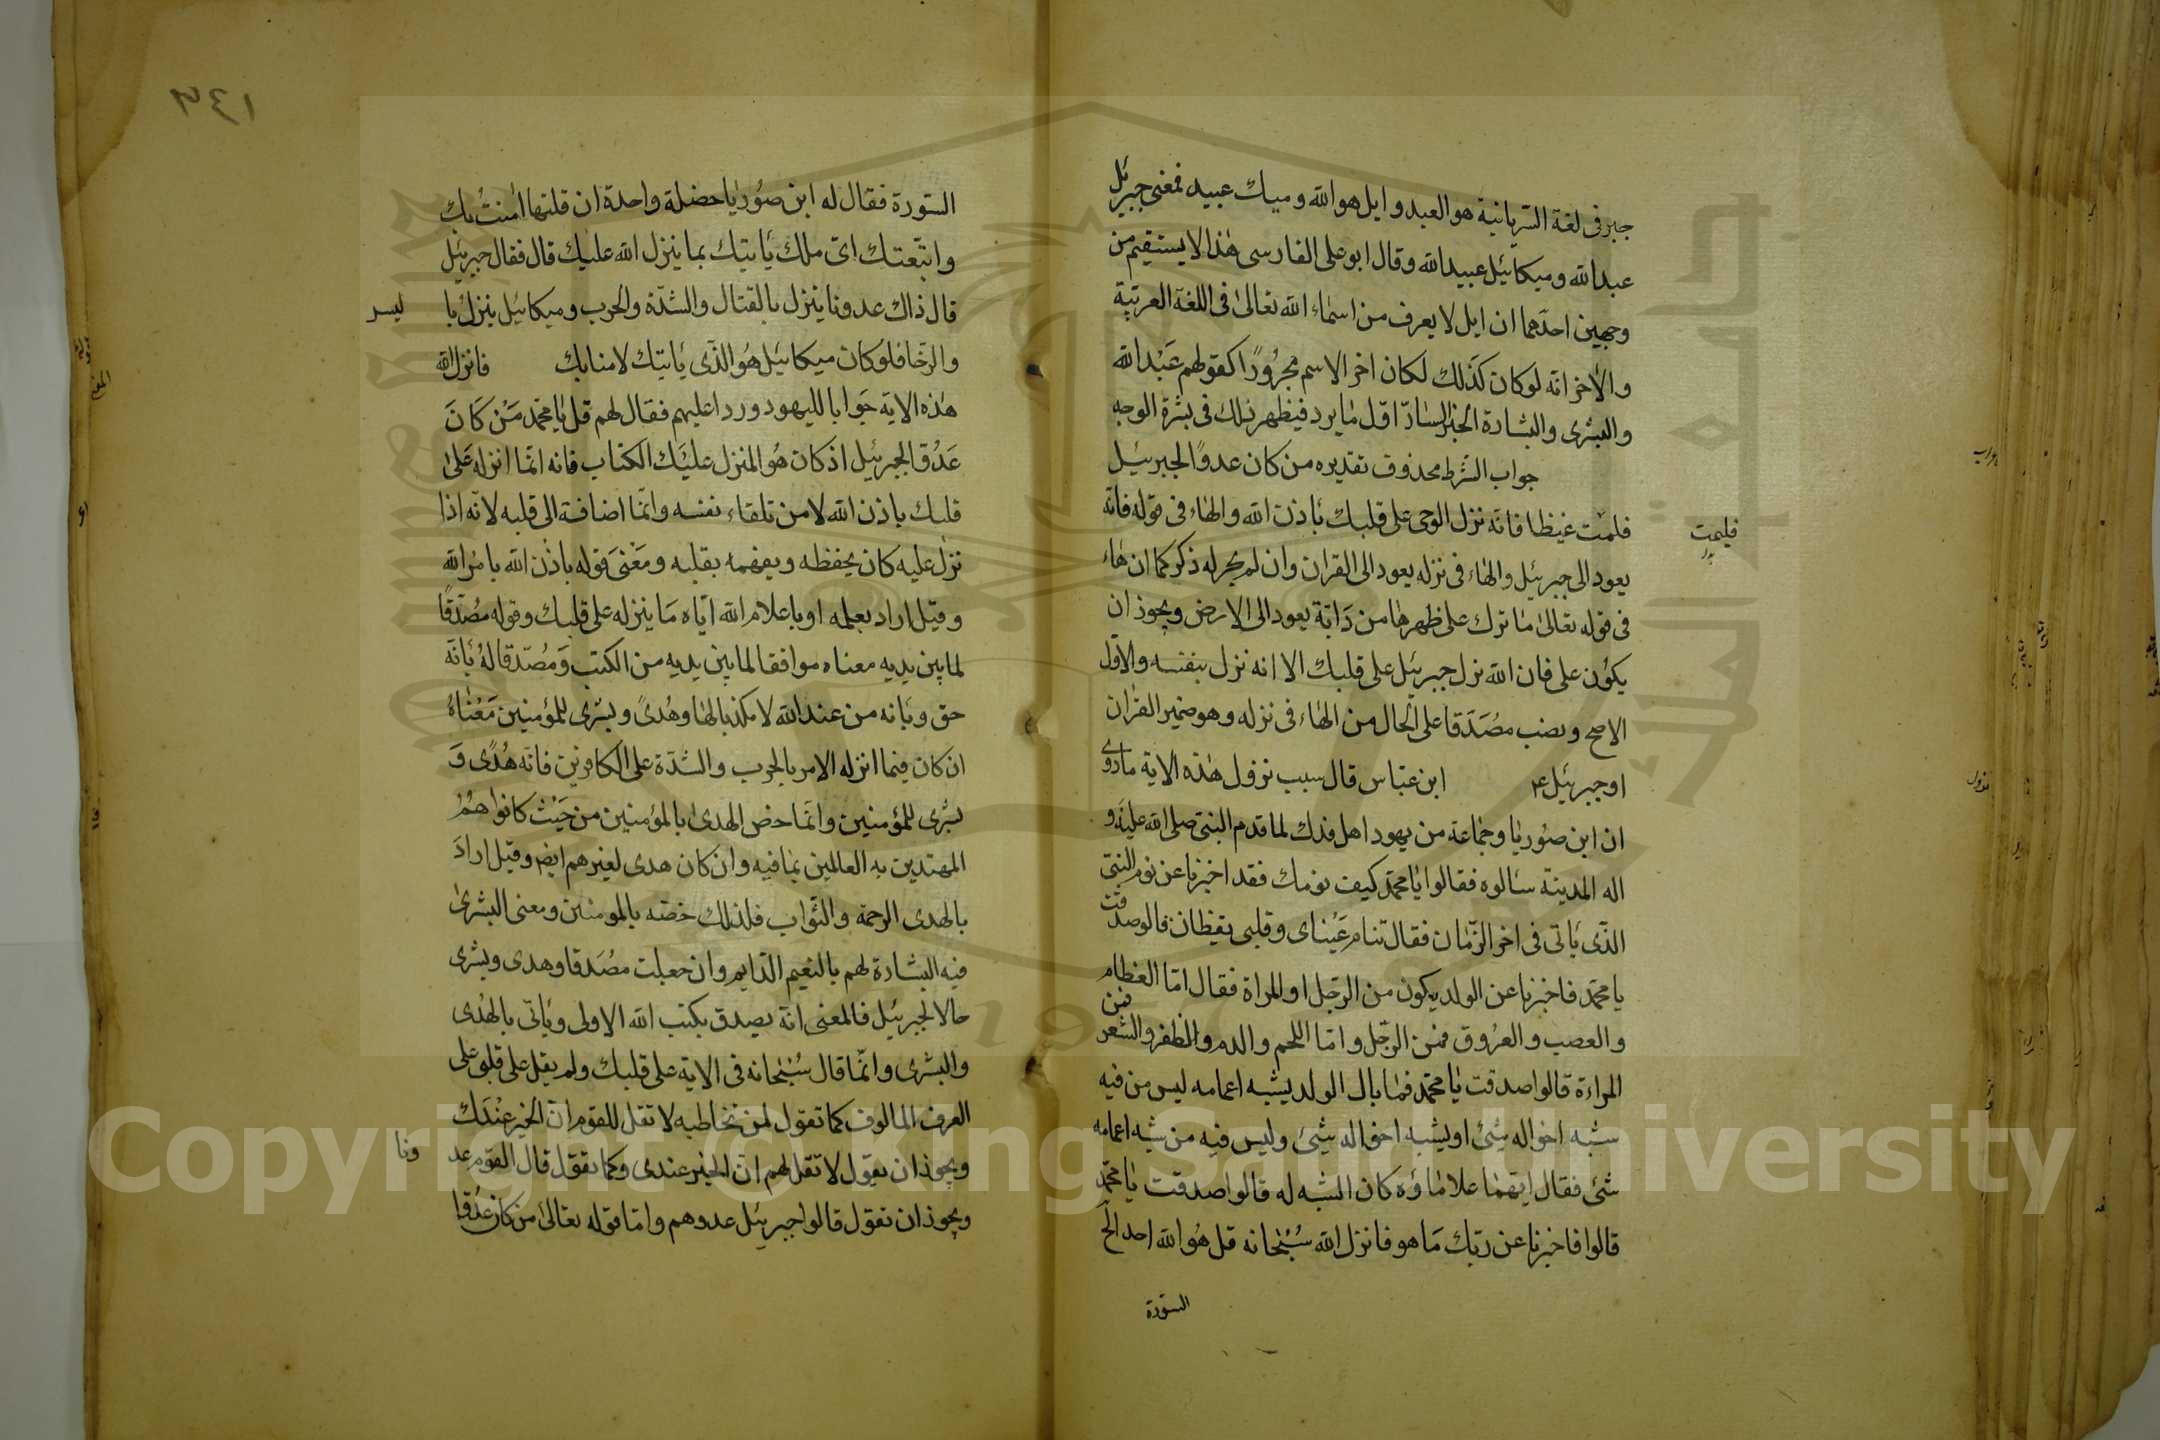 جبر فى لغة السريانية هو العبد و ايل هو الله و ميك عبيد فمعنى جبريل
عبد الله وميكائيل عبيد الله وقال ابو على الفارسى هٰذا لا يستقيم من
وجهين احدَهما ان ايل لا يعرف من اسمٰاء الله تعالىٰ فى اللغة العربيّة
والاٰخر انه لو كان كَذلك لكان اخر الاسم مجرُورًا كقولهم عَبْد الله
والبشرٰى والبشارة الخبر السٰارّ اوّل مٰا يرد فيظهر ذلك فى بشرة الوجه
جواب الشرط محذوف تقديره من كان عدوًا لجبرئيل
فلمت غيظا فانّه نزل الوحى على قلبك بٔاذن الله والهٰاء فى قوله فانّه
فليمت
يعود الى جبرئيل والهٰاء فى نزله يعود الى القران وان لم يجر له ذكر كما ان هٰاء
فى قوله تعالىٰ مٰا ترك على ظهرهٰا من دَابّة يعود الى الارض ويجوز ان
يكوُن على فان الله نزل جبرئيل على قلبك الا انه نزل بنفسه والاوّل
الاصح ونصب مصُدَقا على الحال من الهٰاء فى نزله وهو ضمير القرٰان
او جبرئيل ع ابن عبّاس قال سبب نزول هٰذه الاية ما روى
ان ابن صوُريٰا وجمٰاعة من يهود اهل فدك لما قدم النبىّ صلى الله عليه و
اله المدينة سٔالوه فقالوا يٰا محمّد كيف نومك فقد اخبرنا عن نوم النبىّ
الذّى ئاتى فى اخر الزّمٰان فقال تنام عَيُناى وقلبى يقظان قالو صدقت
يا محمّد فاخبرنا عن الولد يكون من الرّجل او المراة فقال امّا العظام
والعصب والعرُوق فمن الرّجل وامّا اللحم والدم والظفر والشعر فمن
المراءة قالوا صدقت يٰا محمّد فمٰا بال الولد يشبه اعمامه ليس من فيه
شبه اخواله شئ او يشبه اخواله شئ وليس فيه من شبه اعمامه
شئ فقال ايّهمٰا علا مٰاؤه كان الشبه له قالوا صدقت يٰا محمّد
قالوا فاخبرنا عن ربّك مَا هو فانزل الله سُبْحٰانه قل هُو الله احد الخ
السّورة
١٤٦
السّورة فقال له ابن صوُريٰا خصلة واحدة ان قلتها اٰمنتُ بك
واتبّعتك اىّ ملك ئاتيك بما ينزل الله عليك قال فقال جبرئيل
قال ذاك عدونا ينزل بالقتال والشدّة والحرب وميكائيل ينزل با
ليسر
والرخّا فلو كان ميكائيل هُو الذّى ئاتيك لامنا بك فانزل الله
هٰذه الاية جَوابا لليهود وردا عليهم فقال لهم قل يٰا محمّد مَنْ كَانَ
عَدُوّا لجبرئيل اذ كان هُو المنزل عليَك الكتاب فانه انمّا انزله عَلىٰ
قلبك باذن الله لا من تلقاء نفسه وانمّا اضافة الى قلبه لانّه اذا
نزل عليه كان يحفظه ويفهمه بقلبه ومَعْنىَ قوله باذن الله بامر الله
وقيل اراد بعلمه او باعلام الله ايّاه مَا ينزله على قلبك وقوله مصُدّقًا
لما بين يديه معناه موافقا لما بين يديه من الكتب وَمُصَدّقا لهُ بٔانه
حق وبٔانه من عند الله لا مكذبا لهٰا وهُدىً وبشرٰى للمؤمنين مَعْنٰاهُ
ان كان فيما انزله الامر بالحرب والشدّة على الكافرين فانّه هُدًى وَ
بشرٰى للمؤمنين وانمّا خص الهدىٰ بالمؤمنين من حَيْث كانوا هُمُ
المهتدين به العالمين بمٰا فيه وان كان هدى لغيرهم ايض وقيل ارادَ
بالهدى الرحمة والثوّاب فلذلك خصّه بالمومنين ومعنى البشرىٰ
فيه البشارة لهم بالنعيم الدّايم وان جعلت مصُدَقا وهدى وبشرى
حالا لجبرئيل فالمعنى انهّ يصدق بكتب الله الاولى وئاتى بالهُدى
والبشرى وانّمٰا قال سُبْحٰانه فى الاية على قلبك ولم يقل على قلبى على
العرف المالوف كما تقول لمن تخاطبه لا تقل للقوم انّ الخير عنْدَك
ويجوز ان تقول لا تقل لهم انّ الخير عندى وكما تقول قال القوم عد
ونا
ويجوز ان تقول قالوا جبرئيل عدوهم وامّا قوله تعالىٰ من كان عدُوّا
Copyright © King Saud University